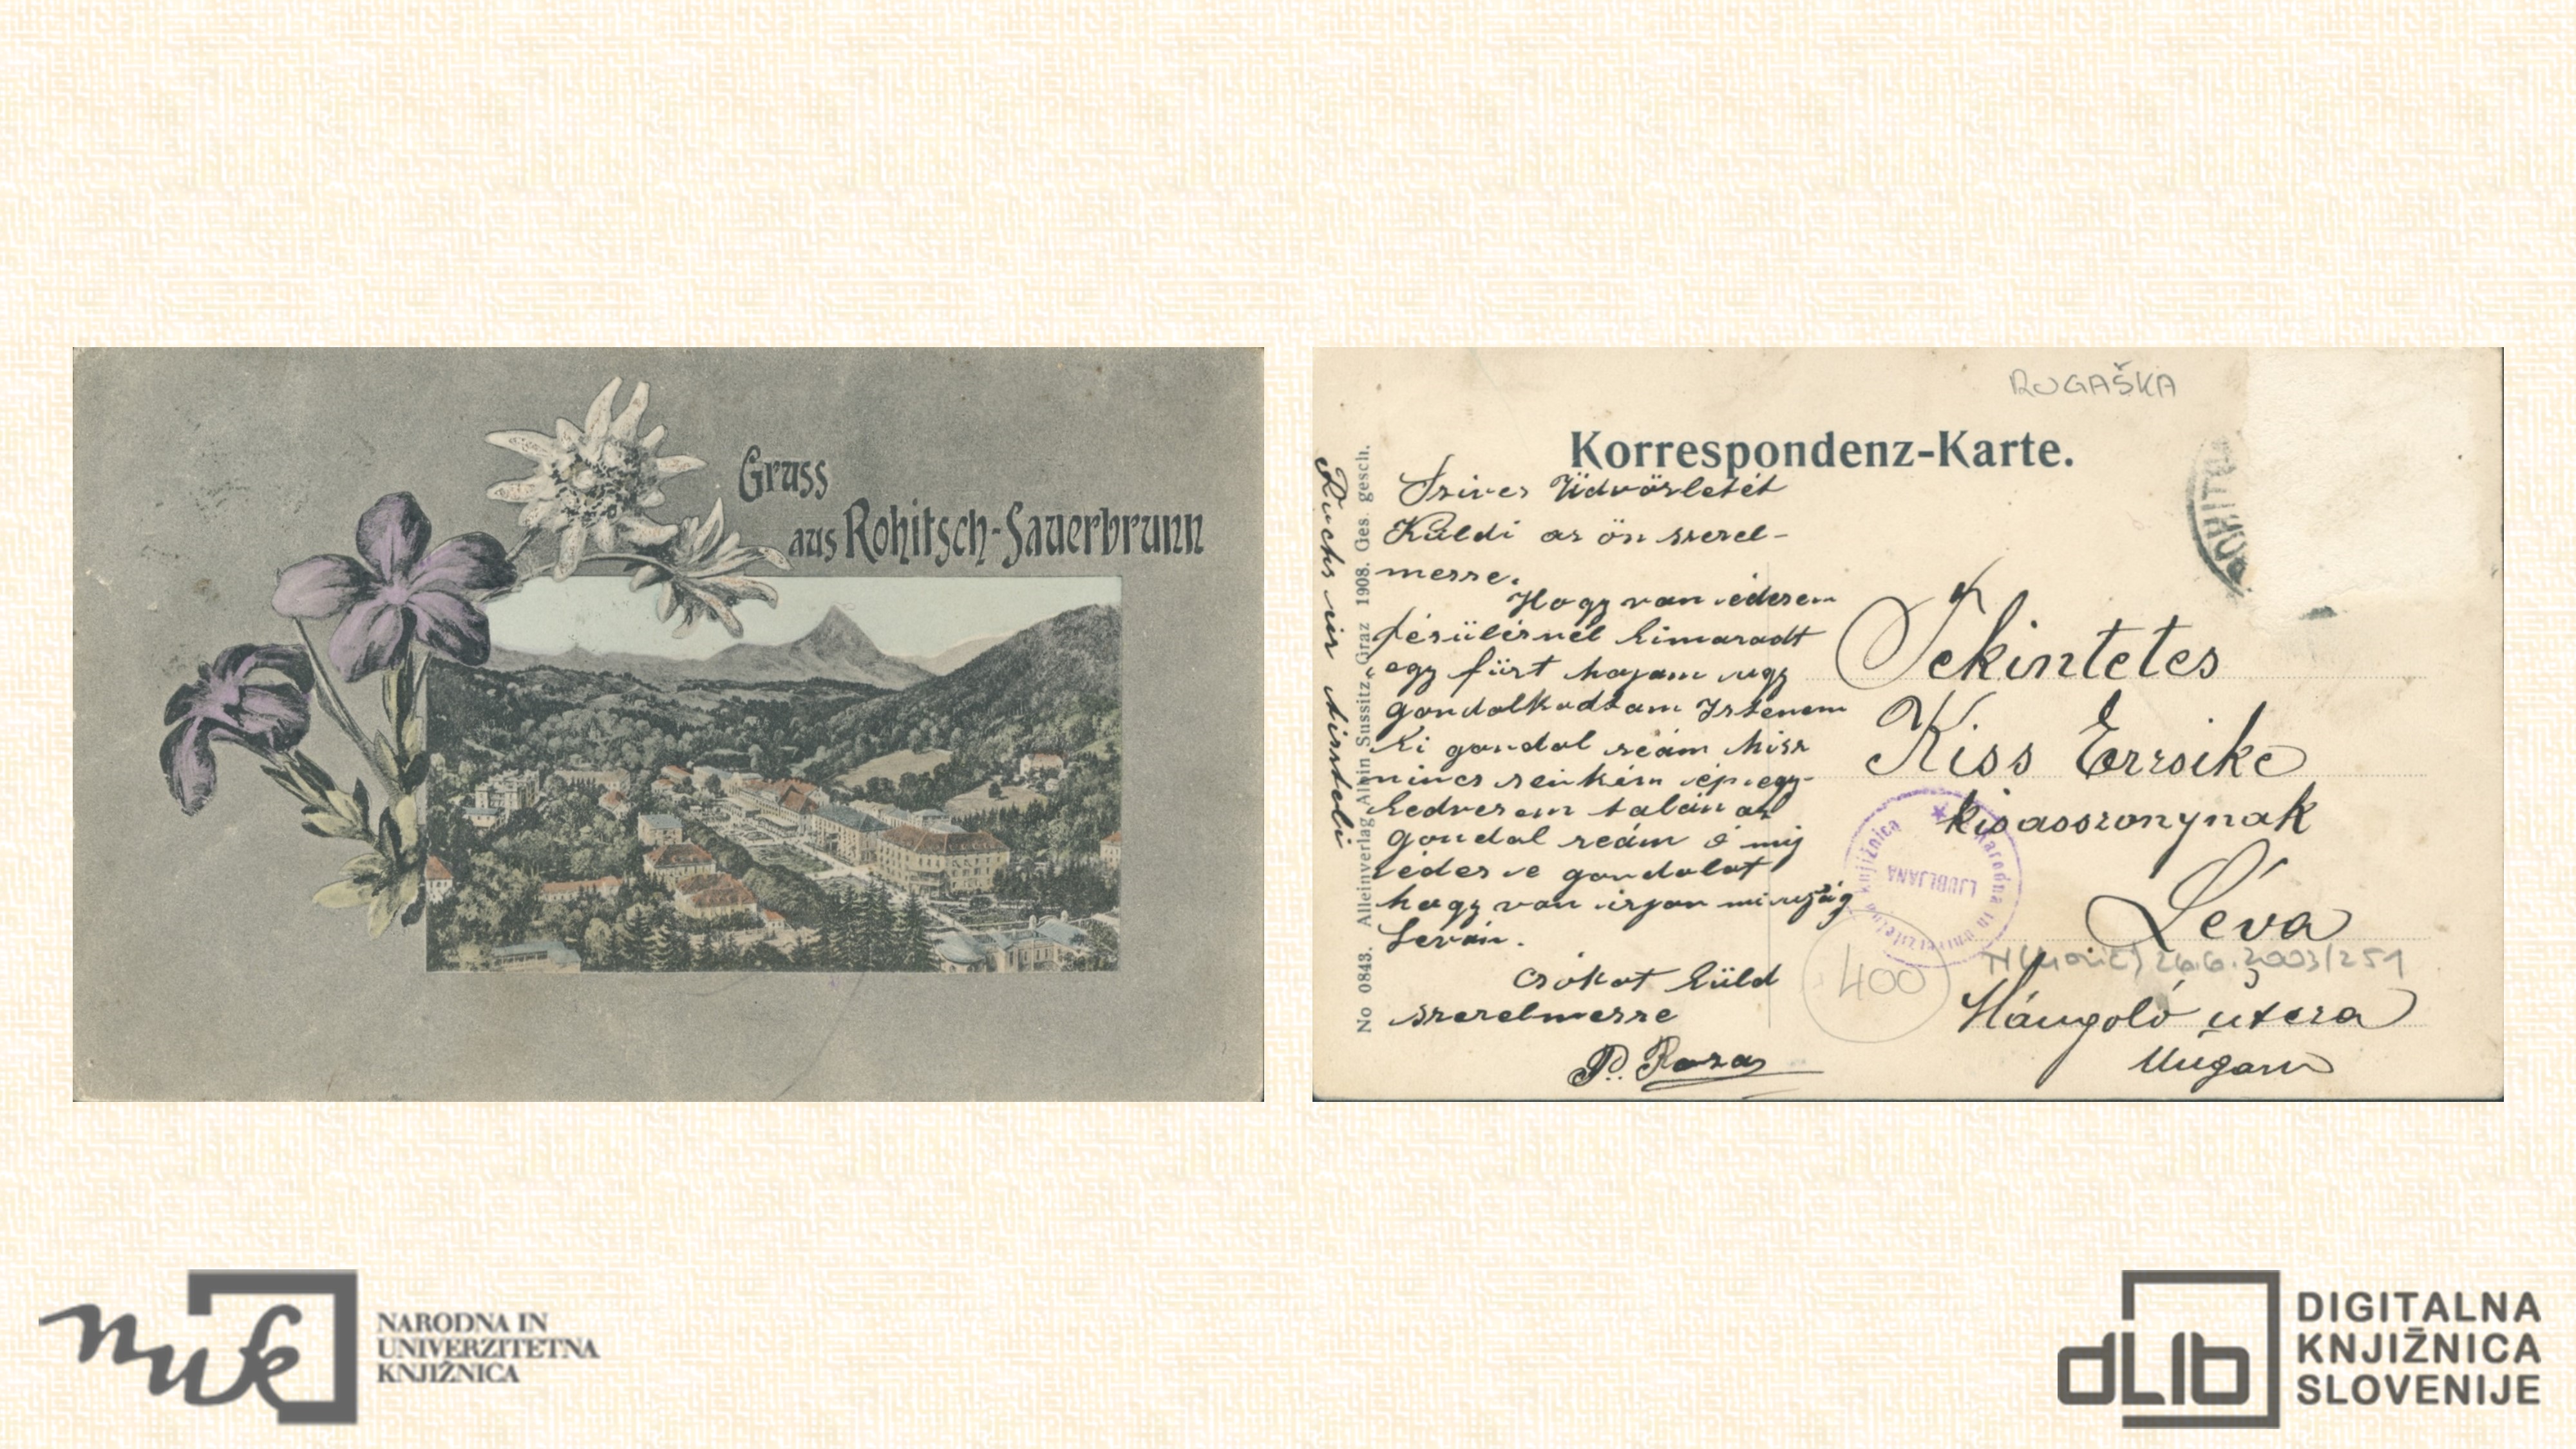 Gruss
aus Rohitsch-Sauerbrunn
ROGAŠKA
Korrespondenz-Karte.
Szives Üdvözletét
Küldi az ön szerel-
messe.
Hogy van édesem
fésülésnél kimaradt
egy fürt hajam ugy
gondolkodtam Istenem
ki gondol reám hisz
nincs senkim ép egy
kedvesem talán az
gondol reám ó mij
édes e gondolat
hogy van irjon mi ujság
Leván.
csókot küld
szerelmesse
P. Roza
No 0843. Alleinverlag Albin Sussitz, Graz 1908. Ges. gesch.
Tekintetes
Kiss Erzsike
kisasszonynak
Léva
Hángoló utcza
Ungarn
Narodna in univerzitetna knjižnica
LJUBLJANA
26.6.2003/251
400
NARODNA IN
UNIVERZITETNA
KNJIŽNICA
nuk
dLib
DIGITALNA
KNJIŽNICA
SLOVENIJE